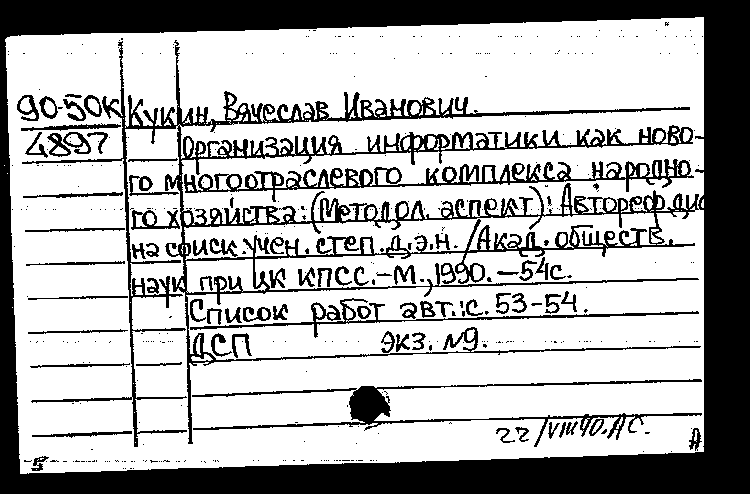 90-50К Кукин, Вячеслав Иванович.
4897 Организация информатики как ново-
го многоотраслевого комплекса народно-
го хозяйства: (Методол. аспект): Автореф. дис
на соиск. учен. степ. д.э.н. / Акад. обществ.
наук при ЦК КПСС. - М., 1990. - 54с.
Список работ авт.: с. 53-54.
ДСП Экз. №9.
22/VIII 90. АС.
А
5